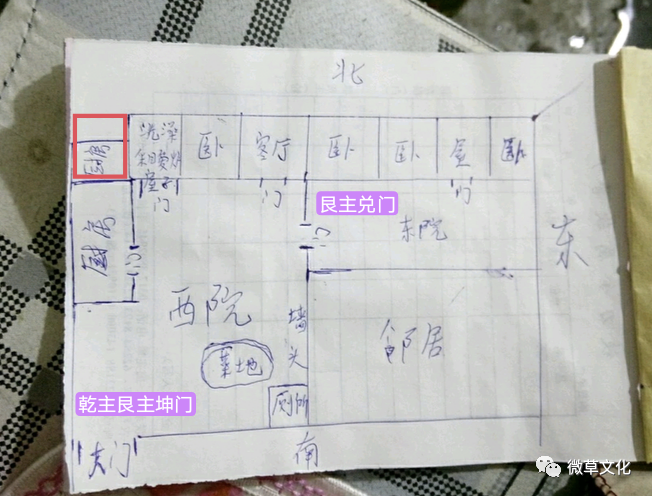 北
厨房
洗澡
和日烧火
屋子
门
卧
客厅
门
卧
卧
门
卧
艮主兑门
门
东院
东
厨房
门
西院
墙
头
邻居
菜地
厕所
乾主艮主坤门
大门
南
微草文化